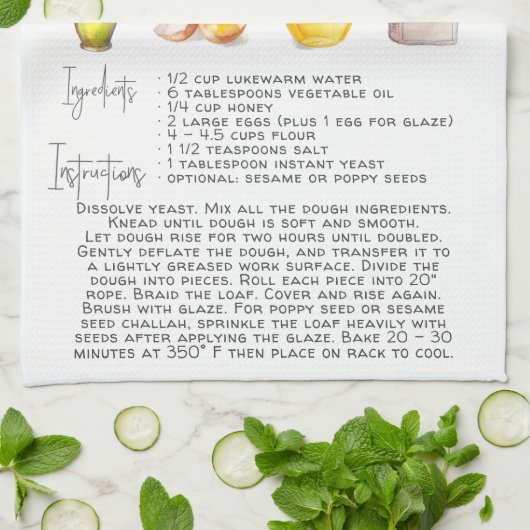 Ingredients
· 1/2 cup lukewarm water
· 6 tablespoons vegetable oil
· 1/4 cup honey
· 2 large eggs (plus 1 egg for glaze)
· 4 – 4.5 cups flour
· 1 1/2 teaspoons salt
· 1 tablespoon instant yeast
· optional: sesame or poppy seeds
Instructions
Dissolve yeast. Mix all the dough ingredients.
Knead until dough is soft and smooth.
Let dough rise for two hours until doubled.
Gently deflate the dough, and transfer it to
a lightly greased work surface. Divide the
dough into pieces. Roll each piece into 20"
rope. Braid the loaf. Cover and rise again.
Brush with glaze. For poppy seed or sesame
seed challah, sprinkle the loaf heavily with
seeds after applying the glaze. Bake 20 – 30
minutes at 350° F then place on rack to cool.